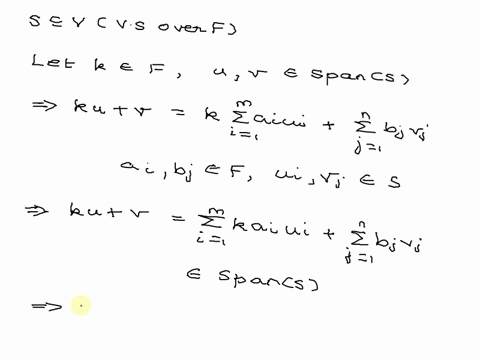 S ⊆ V (V.S over F)
Let k ∈ F, u, v ∈ span(S)
⇒ ku + v = k ∑_{i=1}^{m} a_i u_i + ∑_{j=1}^{n} b_j v_j
a_i, b_j ∈ F, u_i, v_j ∈ S
⇒ ku + v = ∑_{i=1}^{m} k a_i u_i + ∑_{j=1}^{n} b_j v_j
∈ span(S)
⇒